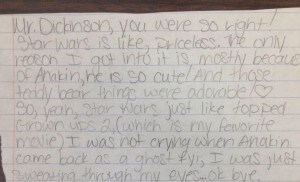 Mr. Dickinson, you were so right!
Star Wars is like, priceless. The only
reason I got into it is mostly because
of Anakin, he is so cute! And those
teddy bear things were adorable! ♡
So, yeah, Star Wars just like topped
Grown Ups 2, (which is my favorite
movie) I was not crying when Anakin
came back as a ghost fyi, I was just
sweating through my eyes... ok bye.